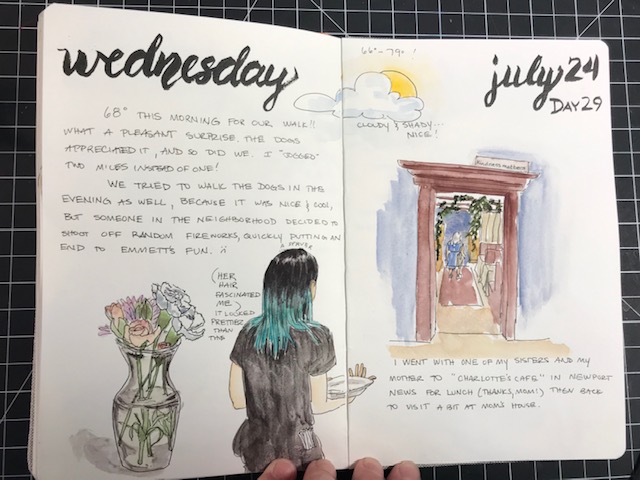 wednesday
68° THIS MORNING FOR OUR WALK!!
WHAT A PLEASANT SURPRISE. THE DOGS
APPRECIATED IT, AND SO DID WE. I "JOGGED"
TWO MILES INSTEAD OF ONE!
WE TRIED TO WALK THE DOGS IN THE
EVENING AS WELL, BECAUSE IT WAS NICE & COOL,
BUT SOMEONE IN THE NEIGHBORHOOD DECIDED TO
SHOOT OFF RANDOM FIREWORKS, QUICKLY PUTTING AN
END TO EMMETT'S FUN.
(HER
HAIR
FASCINATED
ME)
IT LOOKED
PRETTIER
THAN
THIS
66° - 79° !
CLOUDY & SHADY...
NICE!
july 24
DAY 29
I WENT WITH ONE OF MY SISTERS AND MY
MOTHER TO "CHARLOTTE'S CAFE" IN NEWPORT
NEWS FOR LUNCH (THANKS, MOM!) THEN BACK
TO VISIT A BIT AT MOM'S HOUSE.